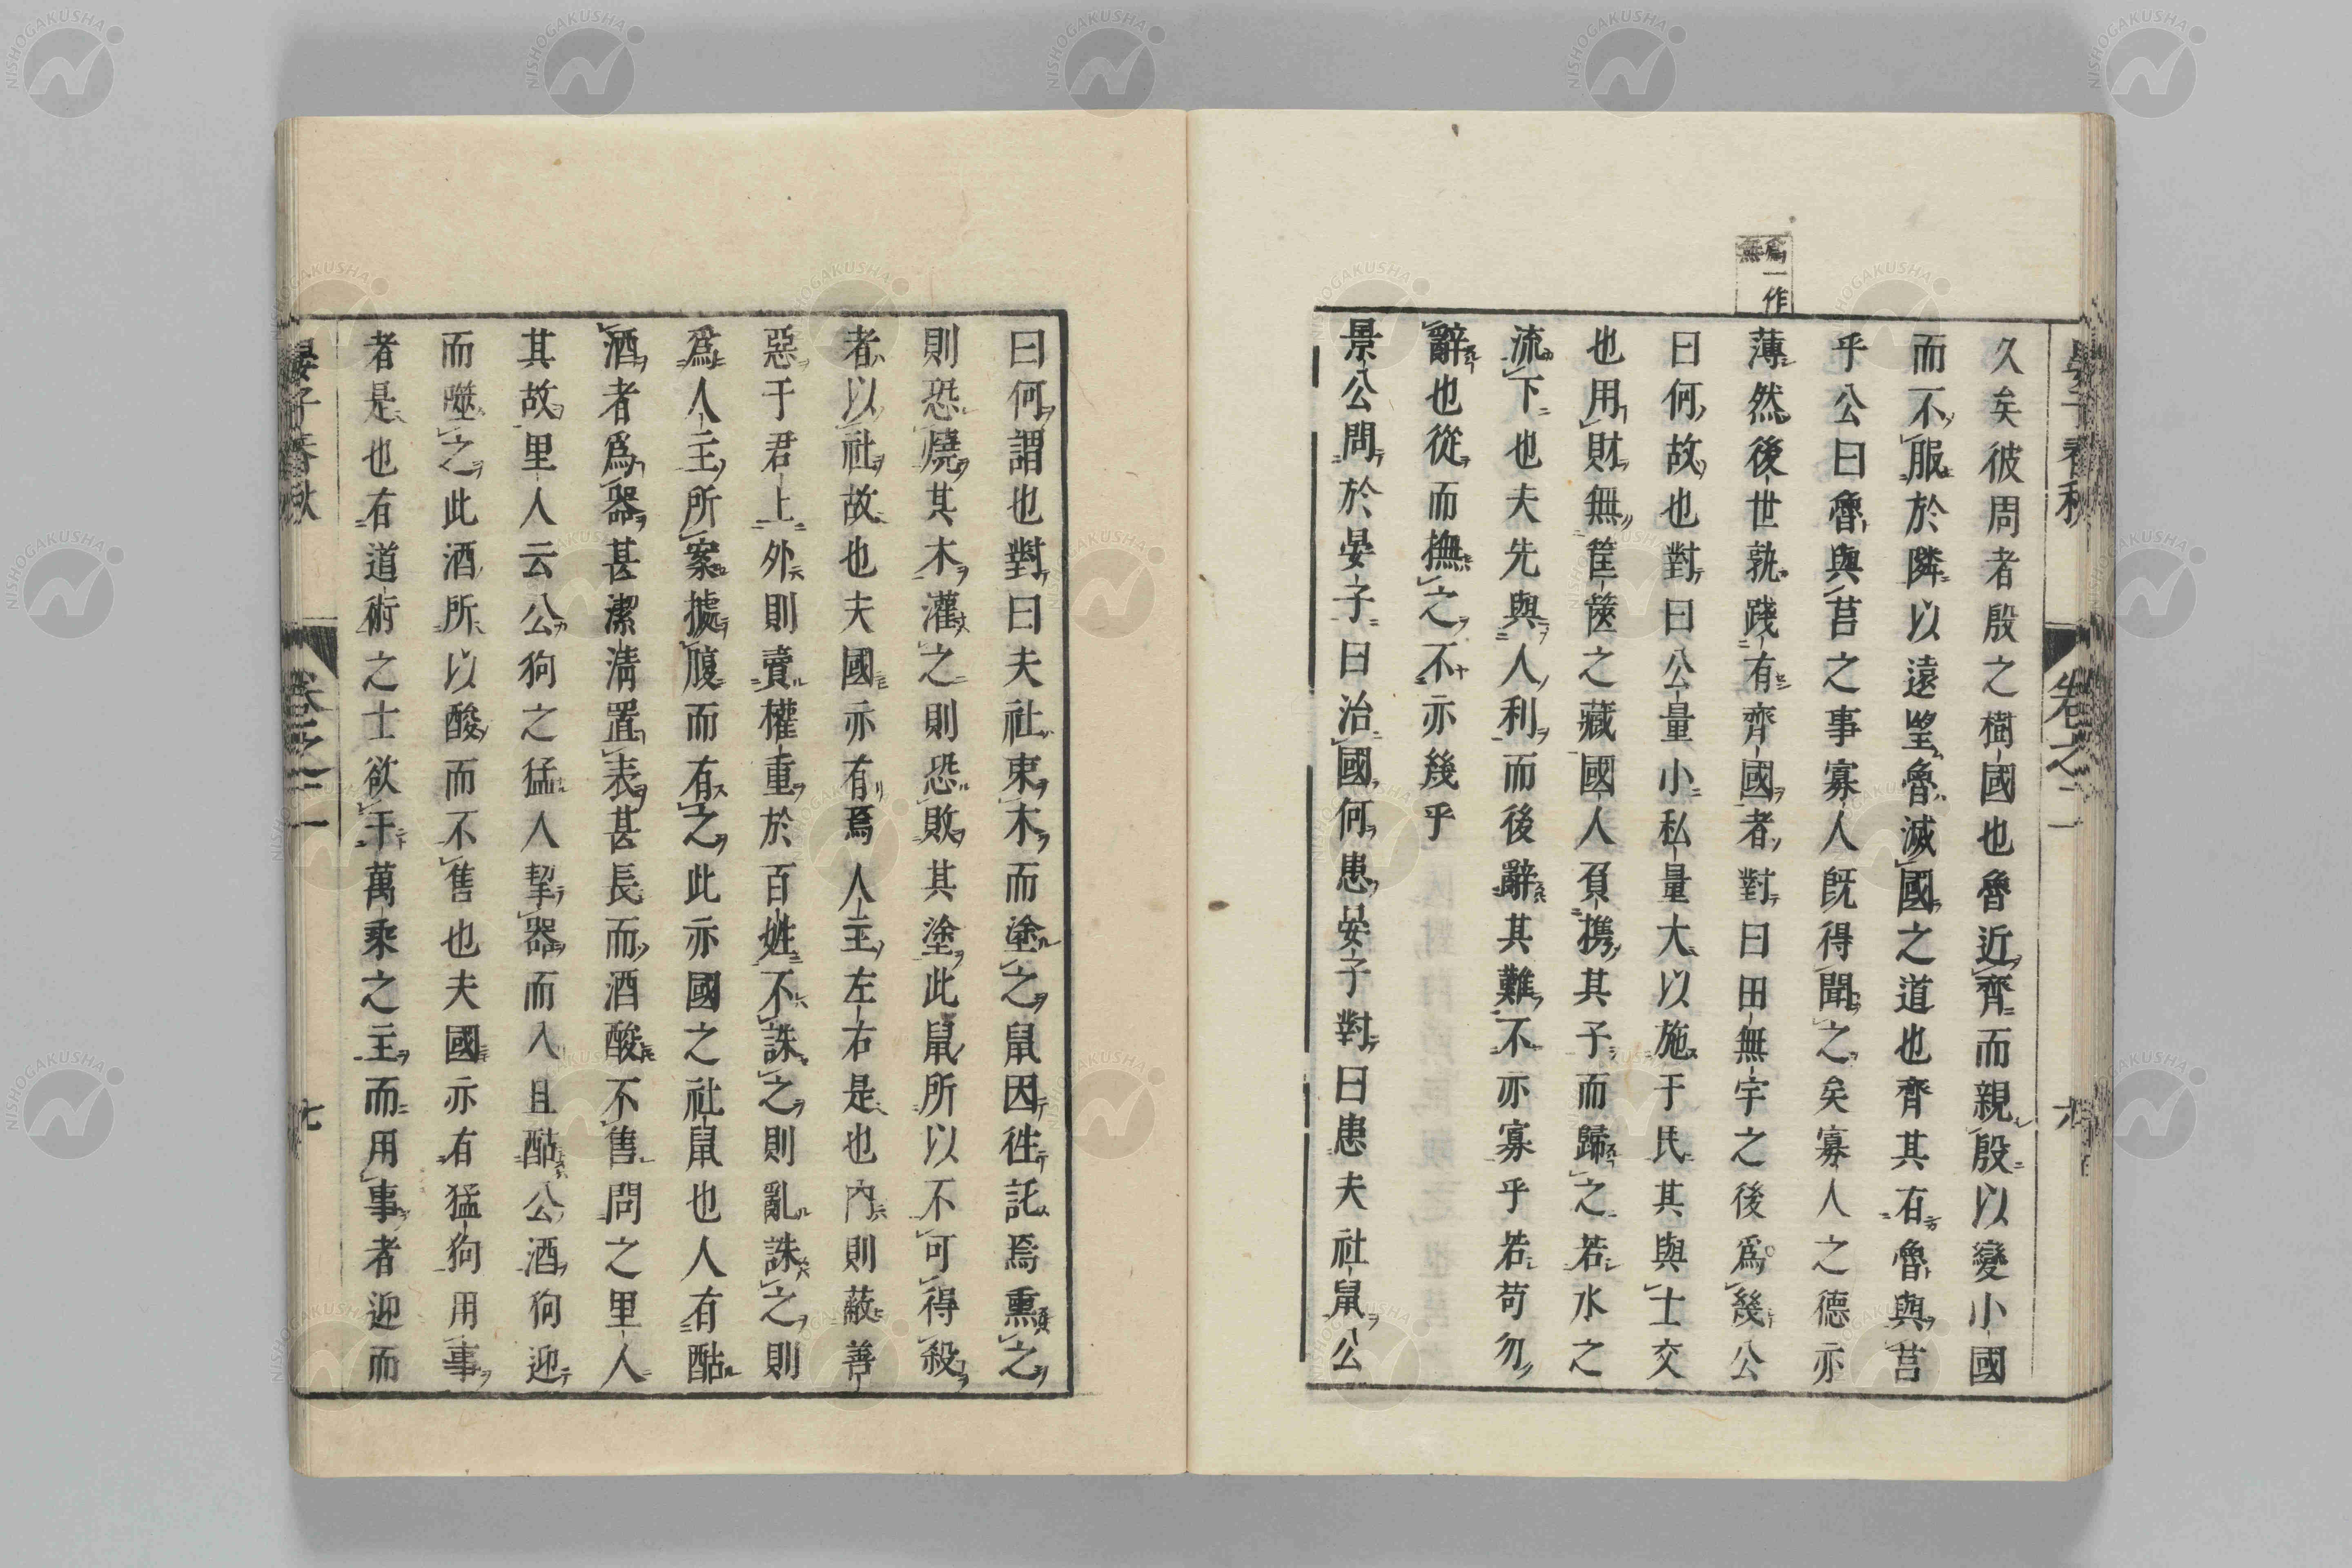 晏子春秋 卷之二 六
爲一作
無
久矣彼周者殷之樹國也魯近齊而親殷以變小國
而不服於隣以遠望魯滅國之道也齊其有魯與莒
乎公曰魯與莒之事寡人既得聞之矣寡人之德亦
薄然後世孰踐有齊國者對曰田無宇之後爲幾公
曰何故也對曰公量小私量大以施于民其與士交
也用財無筐篋之藏國人負携其子而歸之若水之
流下也夫先與人利而後辭其難不亦寡乎若苟勿
辭也從而撫之不亦幾乎
景公問於晏子曰治國何患晏子對曰患夫社鼠公
曰何謂也對曰夫社束木而塗之鼠因徃託焉熏之
則恐燒其木灌之則恐敗其塗此鼠所以不可得殺
者以社故也夫國亦有焉人主左右是也內則蔽善
惡于君上外則賣權重於百姓不誅之則亂誅之則
爲人主所案據腹而有之此亦國之社鼠也人有酤
酒者爲器甚潔清置表甚長而酒酸不售問之里人
其故里人云公狗之猛人挈器而入且酤公酒狗迎
而噬之此酒所以酸而不售也夫國亦有猛狗用事
者是也有道術之士欲干萬乘之主而用事者迎而
晏子春秋 卷之二 七
NISHOGAKUSHA